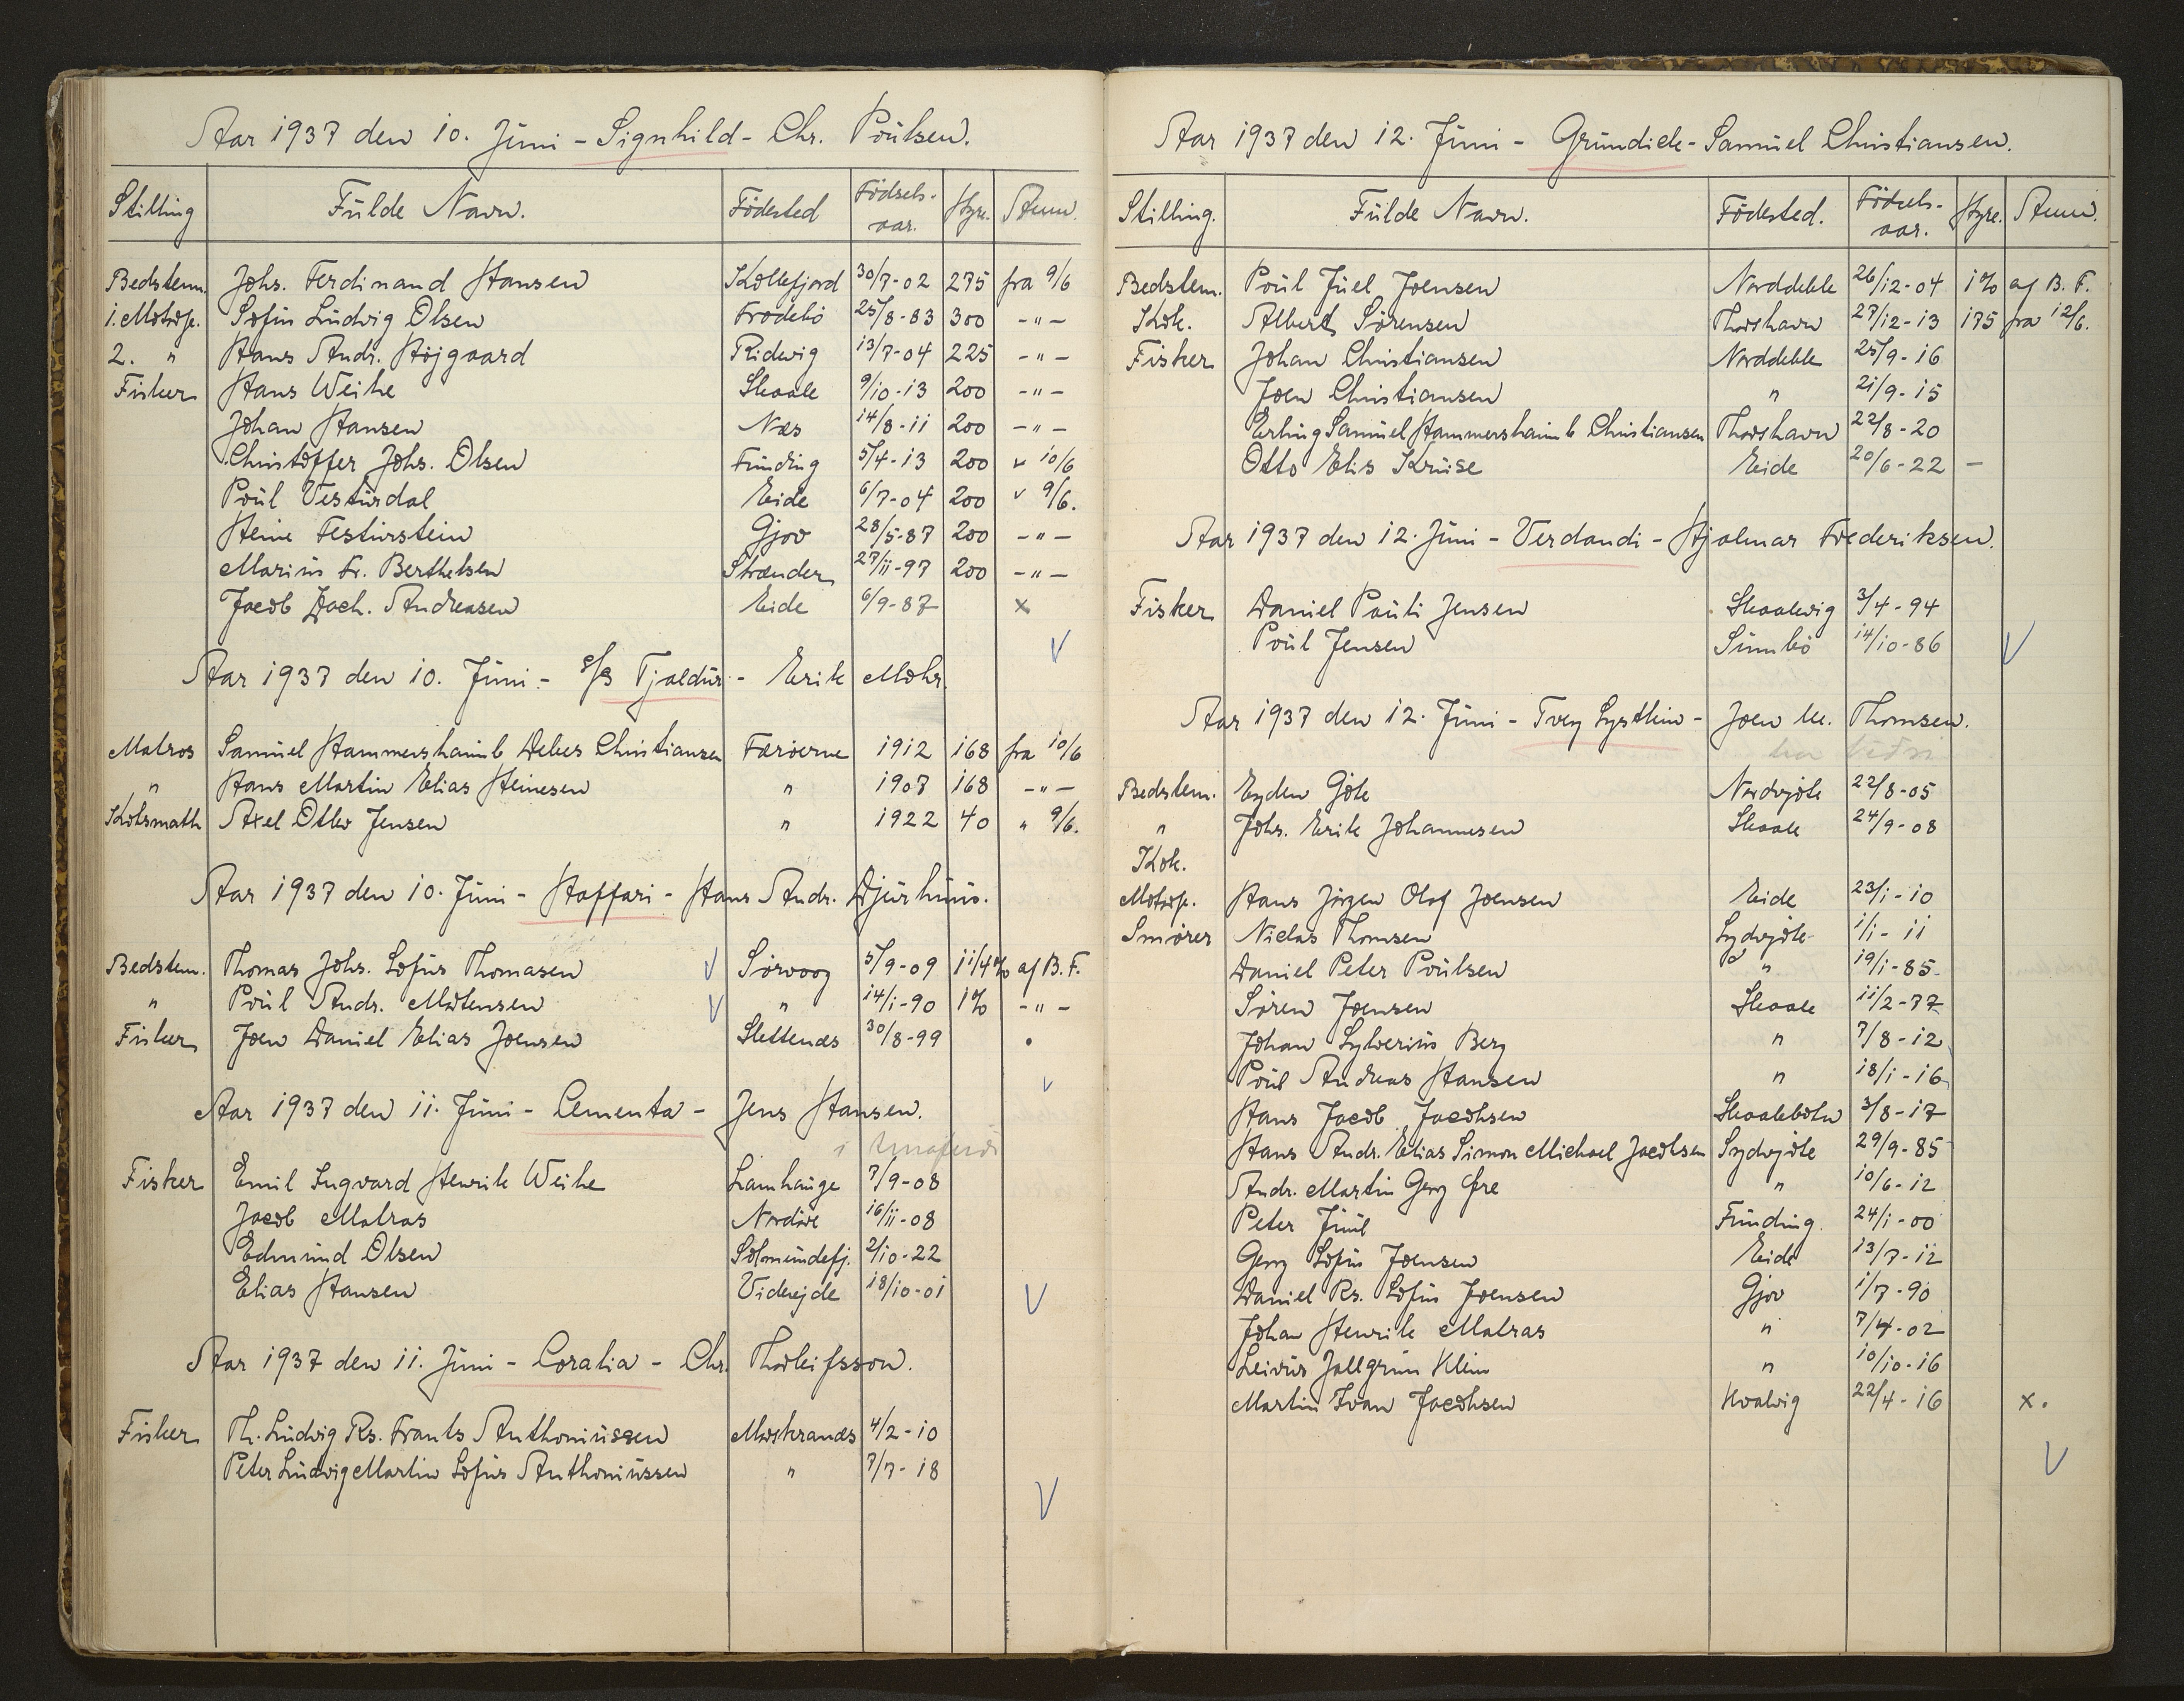 Aar 1937 den 10. Júni - Signhild - Chr. Poúlsen.
Stilling Fúlde Navn. Födested Födsels-aar. Hyre. Anm.
Bedstem. Johs. Ferdinand Hansen Kollefjord 30/7-02 275 fra 9/6
1. Motorp. Sofús Lúdvig Olsen Frodebö 25/8-83 300 -"-
2. " Hans Andr. Höjgaard Ridevig 13/7-04 225 -"-
Fisker Hans Weihe Skaale 9/10-13 200 -"-
Johan Hansen Næs 14/8-11 200 -"-
Christoffer Johs. Olsen Fúnding 5/4-13 200 " 10/6
Poúl Vestúrdal Eide 6/7-04 200 " 9/6.
Heine Festirstein Gjov 28/5-87 200 -"-
Mariús Fr. Berthelsen Strænder 27/11-97 200 -"-
Jacob Zach. Andreasen Eide 6/9-87 x
Aar 1937 den 10. Júni - s/s Tjaldúr - Erik Mohr.
Matros Samúel Hammershaimb Debes Christiansen Færöerne 1912 168 fra 10/6
" Hans Martin Elias Heinesen " 1907 168 -"-
Koksmath Axel Otto Jensen " 1922 40 " 9/6.
Aar 1937 den 10. Júni - Haffari - Hans Andr. Djúrhúús.
Bedstem. Thomas Johs. Sofús Thomasen V Sörvaag 5/9-09 1 1/4% af B.F.
" Poúl Andr. Mortensen V " 14/1-90 1% -"-
Fisker Joen Daniel Elias Joensen Slettenæs 30/8-99 .
Aar 1937 den 11. Júni - Cementa - Jens Hansen.
Fisker Emil Ingvard Henrik Weihe Lamhaúge 7/9-08
Jacob Matras Nordöre 16/11-08
Edmúnd Olsen Solmúndefj. 2/10-22
Elias Hansen Viderejde 18/10-01
Aar 1937 den 11. Júni - Coralia - Chr. Thorleifsson.
Fisker Th. Lúdvig Rs. Frants Anthoniússen Morkranæs 4/2-10
Peter Lúdvig Martin Sofús Anthoniússen " 7/7-18
Aar 1937 den 12. Júni - Grúndick - Samúel Christiansen.
Stilling. Fúlde Navn. Födested. Födsels-aar. Hyre. Anm.
Bedstem. Poúl Júel Joensen Norddeble 26/12-04 1% af B.F.
Kok. Albert Sörensen Thorshavn 27/12-13 175 fra 12/6.
Fisker Johan Christiansen Norddeble 25/9-16
Joen Christiansen " 21/9-15
Erling Samúel Hammershaimb Christiansen Thorshavn 22/8-20
Otto Elis Krúse Eide 20/6-22 -
Aar 1937 den 12. Júni - Verdandi - Hjalmar Frederiksen.
Fisker Daniel Paúli Jensen Skaalevig 3/4-94
Poúl Jensen Súmbö 14/10-86
Aar 1937 den 12. Júni - Tvey Systkin - Joen M. Thomsen.
Bedstem. Eyden Göte Nordrgöte 22/8-05
" Johs. Erik Johannesen Skaale 24/9-08
Kok.
Motorp. Hans Jörgen Olaf Joensen Eide 23/1-10
Smörer Niclas Thomsen Sydrgöte 1/1-11
Daniel Peter Poúlsen " 19/1-85
Sören Joensen Skaale 11/2-77
Johan Sylveriús Berg " 7/8-12
Poúl Andreas Hansen " 18/1-16
Hans Jacob Jacobsen Skaalebotn 3/8-17
Hans Andr. Elias Simon Michael Jacobsen Sydrgöte 29/9-85
Andr. Martin Georg Øre " 10/6-12
Peter Júúl Fúnding 24/1-00
Georg Sofús Joensen Eide 13/7-12
Daniel Rs. Sofús Joensen Gjov 1/7-90
Johan Henrik Matras " 7/4-02
Leivúr Jallgrim Klein " 10/10-16
Martin Ivan Jacobsen Hvalvig 22/4-16 x.